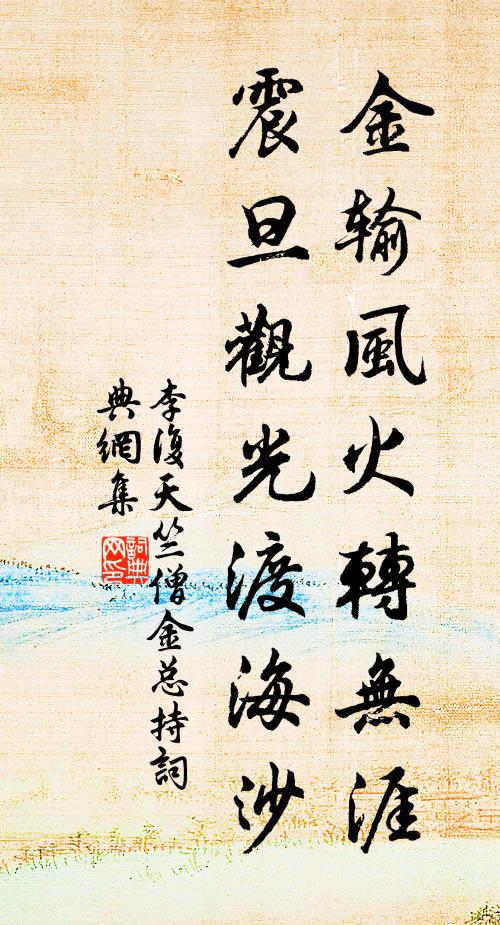 金輸風火轉無涯
震旦觀光渡海沙
李復天竺僧金总持詞
典網集
詞典
网印